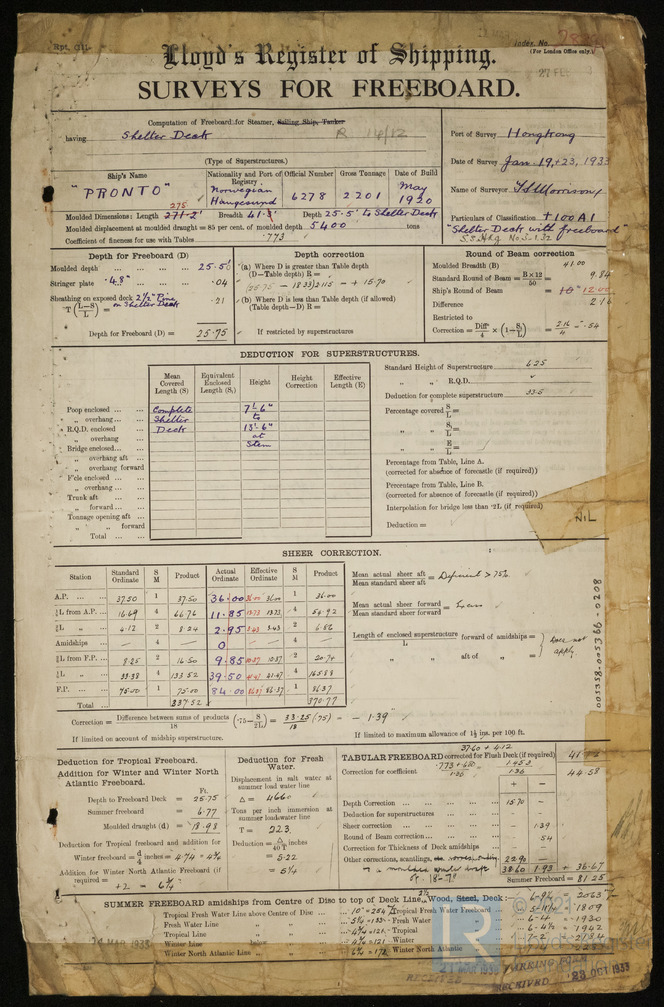 Rpt. C11.
Index No.
(For London Office only.)
Lloyd's Register of Shipping.
SURVEYS FOR FREEBOARD.
Computation of Freeboard for Steamer, Sailing Ship, Tanker
having Shelter Deck
R 14/12
(Type of Superstructures.)
Port of Survey Hongkong
Date of Survey Jan. 19, +23, 1933
Name of Surveyor
Particulars of Classification +100 A1
"Shelter Deck with freeboard"
Ship's Name
"PRONTO"
Nationality and Port of Registry
Norwegian
Haugesund
Official Number
6278
Gross Tonnage
2201
Date of Build
May
1920
275
Moulded Dimensions: Length 271-2' Breadth 41.8' Depth 25.5' to Shelter Deck
Moulded displacement at moulded draught = 85 per cent. of moulded depth 5400 tons
Coefficient of fineness for use with Tables .773
Depth for Freeboard (D)
Moulded depth ... 25.50
Stringer plate .48" ... .04
Sheathing on exposed deck 2½" Pine on Shelter Deck
T (L-S/L) = .21
Depth for Freeboard (D) = 25.75
Depth correction
(a) Where D is greater than Table depth
(D—Table depth) R =
(25.75 - 18.33) 2.115 = + 15.70
(b) Where D is less than Table depth (if allowed)
(Table depth—D) R =
If restricted by superstructures
Round of Beam correction
Moulded Breadth (B) 41.00
Standard Round of Beam = B×12/50 = 9.84
Ship's Round of Beam = 10" 12.00
Difference 2.16
Restricted to
Correction = Diff/4 × (1-S/L) = 2.16/4 = .54
DEDUCTION FOR SUPERSTRUCTURES.
Mean Covered Length (S)
Equivalent Enclosed Length (S₁)
Height
Height Correction
Effective Length (E)
Poop enclosed ... Complete 7'-6"
„ overhang ... Shelter to
R.Q.D. enclosed Deck 13'-6"
„ overhang at
Bridge enclosed... Stem
„ overhang aft
„ overhang forward
F'cle enclosed ...
„ overhang ...
Trunk aft ...
„ forward ...
Tonnage opening aft ...
„ „ forward
Total ...
Standard Height of Superstructure 6.25
„ „ R.Q.D.
Deduction for complete superstructure 33.5
Percentage covered S/L =
„ „ S₁/L =
„ „ E/L =
Percentage from Table, Line A.
(corrected for absence of forecastle (if required))
Percentage from Table, Line B.
(corrected for absence of forecastle (if required))
Interpolation for bridge less than ·2L (if required)
Deduction =
NIL
SHEER CORRECTION.
Station Standard Ordinate S M Product Actual Ordinate Effective Ordinate S M Product
A.P. ... 37.50 1 37.50 36.00 36.00 36.00 1 36.00
⅙L from A.P. 16.69 4 66.76 11.85 13.73 13.73 4 54.92
⅓L „ 4.12 2 8.24 2.95 3.43 3.43 2 6.86
Amidships — 4 — 0 4 —
⅓L from F.P. 8.25 2 16.50 9.85 10.37 10.37 2 20.74
⅙L „ 33.38 4 133.52 39.50 41.47 41.47 4 165.88
F.P. ... 75.00 1 75.00 84.00 86.37 86.37 1 86.37
Total ... 337.52 370.77
Mean actual sheer aft / Mean standard sheer aft = Deficient > 75%
Mean actual sheer forward / Mean standard sheer forward = Excess
Length of enclosed superstructure / L forward of amidships =
„ „ aft of „ =
Does not apply.
005358-005366-0208
Correction = Difference between sums of products / 18 (·75 - S/2L) = 33.25/18 (.75) = - 1.39
If limited on account of midship superstructure.
If limited to maximum allowance of 1½ ins. per 100 ft.
Deduction for Tropical Freeboard.
Addition for Winter and Winter North Atlantic Freeboard.
Ft.
Depth to Freeboard Deck = 25.75
Summer freeboard = 6.77
Moulded draught (d) = 18.98
Deduction for Tropical freeboard and addition for
Winter freeboard = d/4 inches = 4.74 = 4¾
Addition for Winter North Atlantic Freeboard (if required =
+2 = 6¾
Deduction for Fresh Water.
Displacement in salt water at summer load water line
Δ = 4660
Tons per inch immersion at summer load water line
T = 22.3
Deduction = Δ/40T inches
= 5.22
= 5¼
TABULAR FREEBOARD corrected for Flush Deck (if required)
37.60 + 4.12
Correction for coefficient .773+.680/1.36 1.453/1.36
44.58
+ −
Depth Correction ... 15.70 —
Deduction for superstructures ...
Sheer correction ... — 1.39
Round of Beam correction ... — .54
Correction for Thickness of Deck amidships ...
Other corrections, scantlings, 22.90 —
38.60 1.93 + 36.67
Summer Freeboard = 81.25
SUMMER FREEBOARD amidships from Centre of Disc to top of Deck Line, Wood, Steel, Deck:—
Tropical Fresh Water Line above Centre of Disc ...
Fresh Water Line „ „
Tropical Line „ „
Winter Line below „
Winter North Atlantic Line „ „
Tropical Fresh Water Freeboard
Fresh „ „
Tropical „
Winter „
Winter North Atlantic „
© 2021
LR
24 MAR 1933
RECEIVED
MARKING FORM
RECEIVED 23 OCT 1933